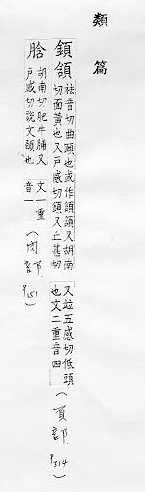 類篇
顉頷 祛音切曲頤也或作頷頷又胡南
切面黃也又戶感切顉又丘甚切
又竝五感切低頭
也文二重音四 (頁部 P314)
肣 胡南切肥牛脯又 文一重
戶感切說文頤也 音一 (肉部 P151)